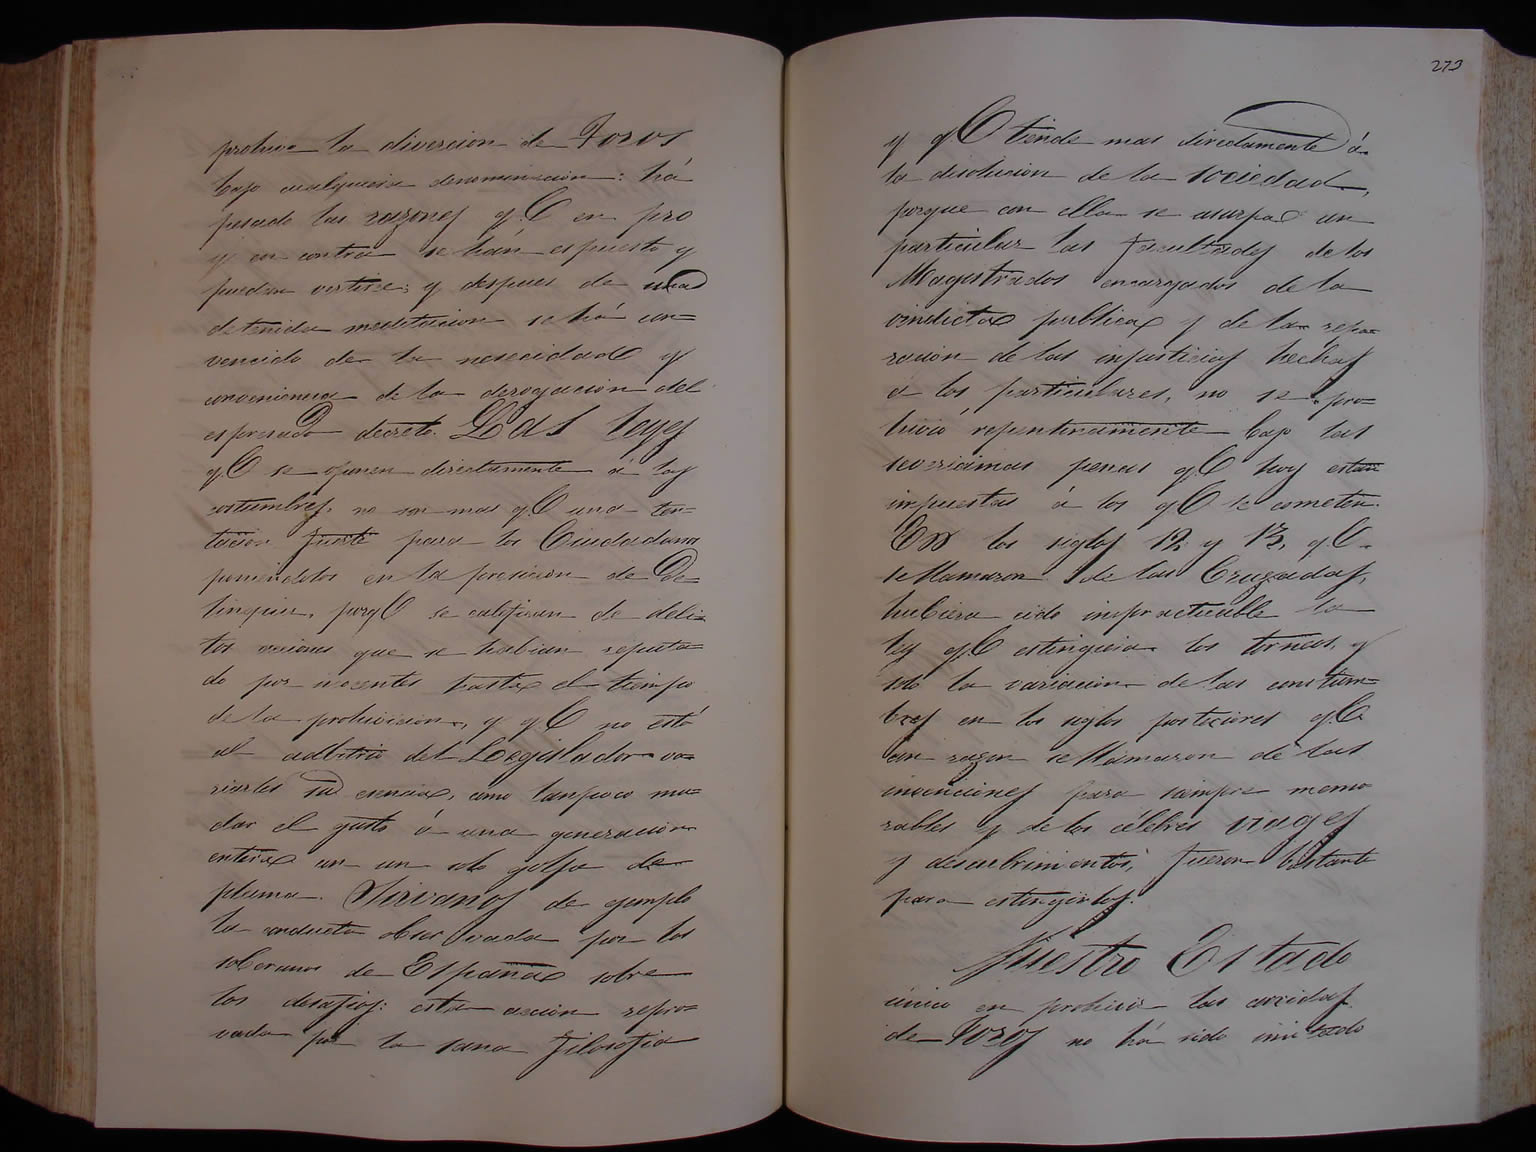 prohive la divercion de Toros
bajo cualquiera denominacion: há
pesado las razones q.e en pro
y en contra se hán espuesto y
puedan vertirse; y despues de una
detenida meditacion se há con=
vencido de la necesidad y
conveniencia de la derogacion del
espresado decreto. Las leyes
q.e se oponen directamente á las
costumbres, no son mas q.e una ten=
tacion fuerte para los Ciudadanos
poniendolos en la precision de De=
linquir, porq.e se califican de deli=
tos acciones que se habian reputa=
do por inocentes hasta el tiempo
de la prohivicion, y q.e no está
al adbitrio del Legislador va=
riarles su esencia, como tanpoco mu=
dar el gusto á una generacion
entera con un solo golpe de
pluma. Sirvanos de ejemplo
la conducta observada por los
soberanos de España sobre
los desafios: esta accion repro=
vada por la sana filosofia
273
y q.e tiende mas directamente á
la disolucion de la sociedad,
porque con ella se usurpa un
particular las facultades de los
Magistrados encargados de la
vindicta publica y de la repa=
racion de las injusticias hechas
á los particulares, no se pro=
hivió repentinamente bajo las
severicimas penas q.e hoy estan
impuestas á los q.e le cometen.
En los siglos 12 y 13, q.e
se llamaron de las Cruzadas,
hubiera cido impracticable la
ley q.e estinguiera los torneos, y
solo la variacion de las costum=
bres en los siglos posteriores q.e
con razon se llamaron de las
invenciones para siempre memo
rables y de los célebres viages
y descubrimientos, fueron bastante
para estingirlos.
Nuestro Estado
único en prohivir las corridas
de Toros no há sido imitado